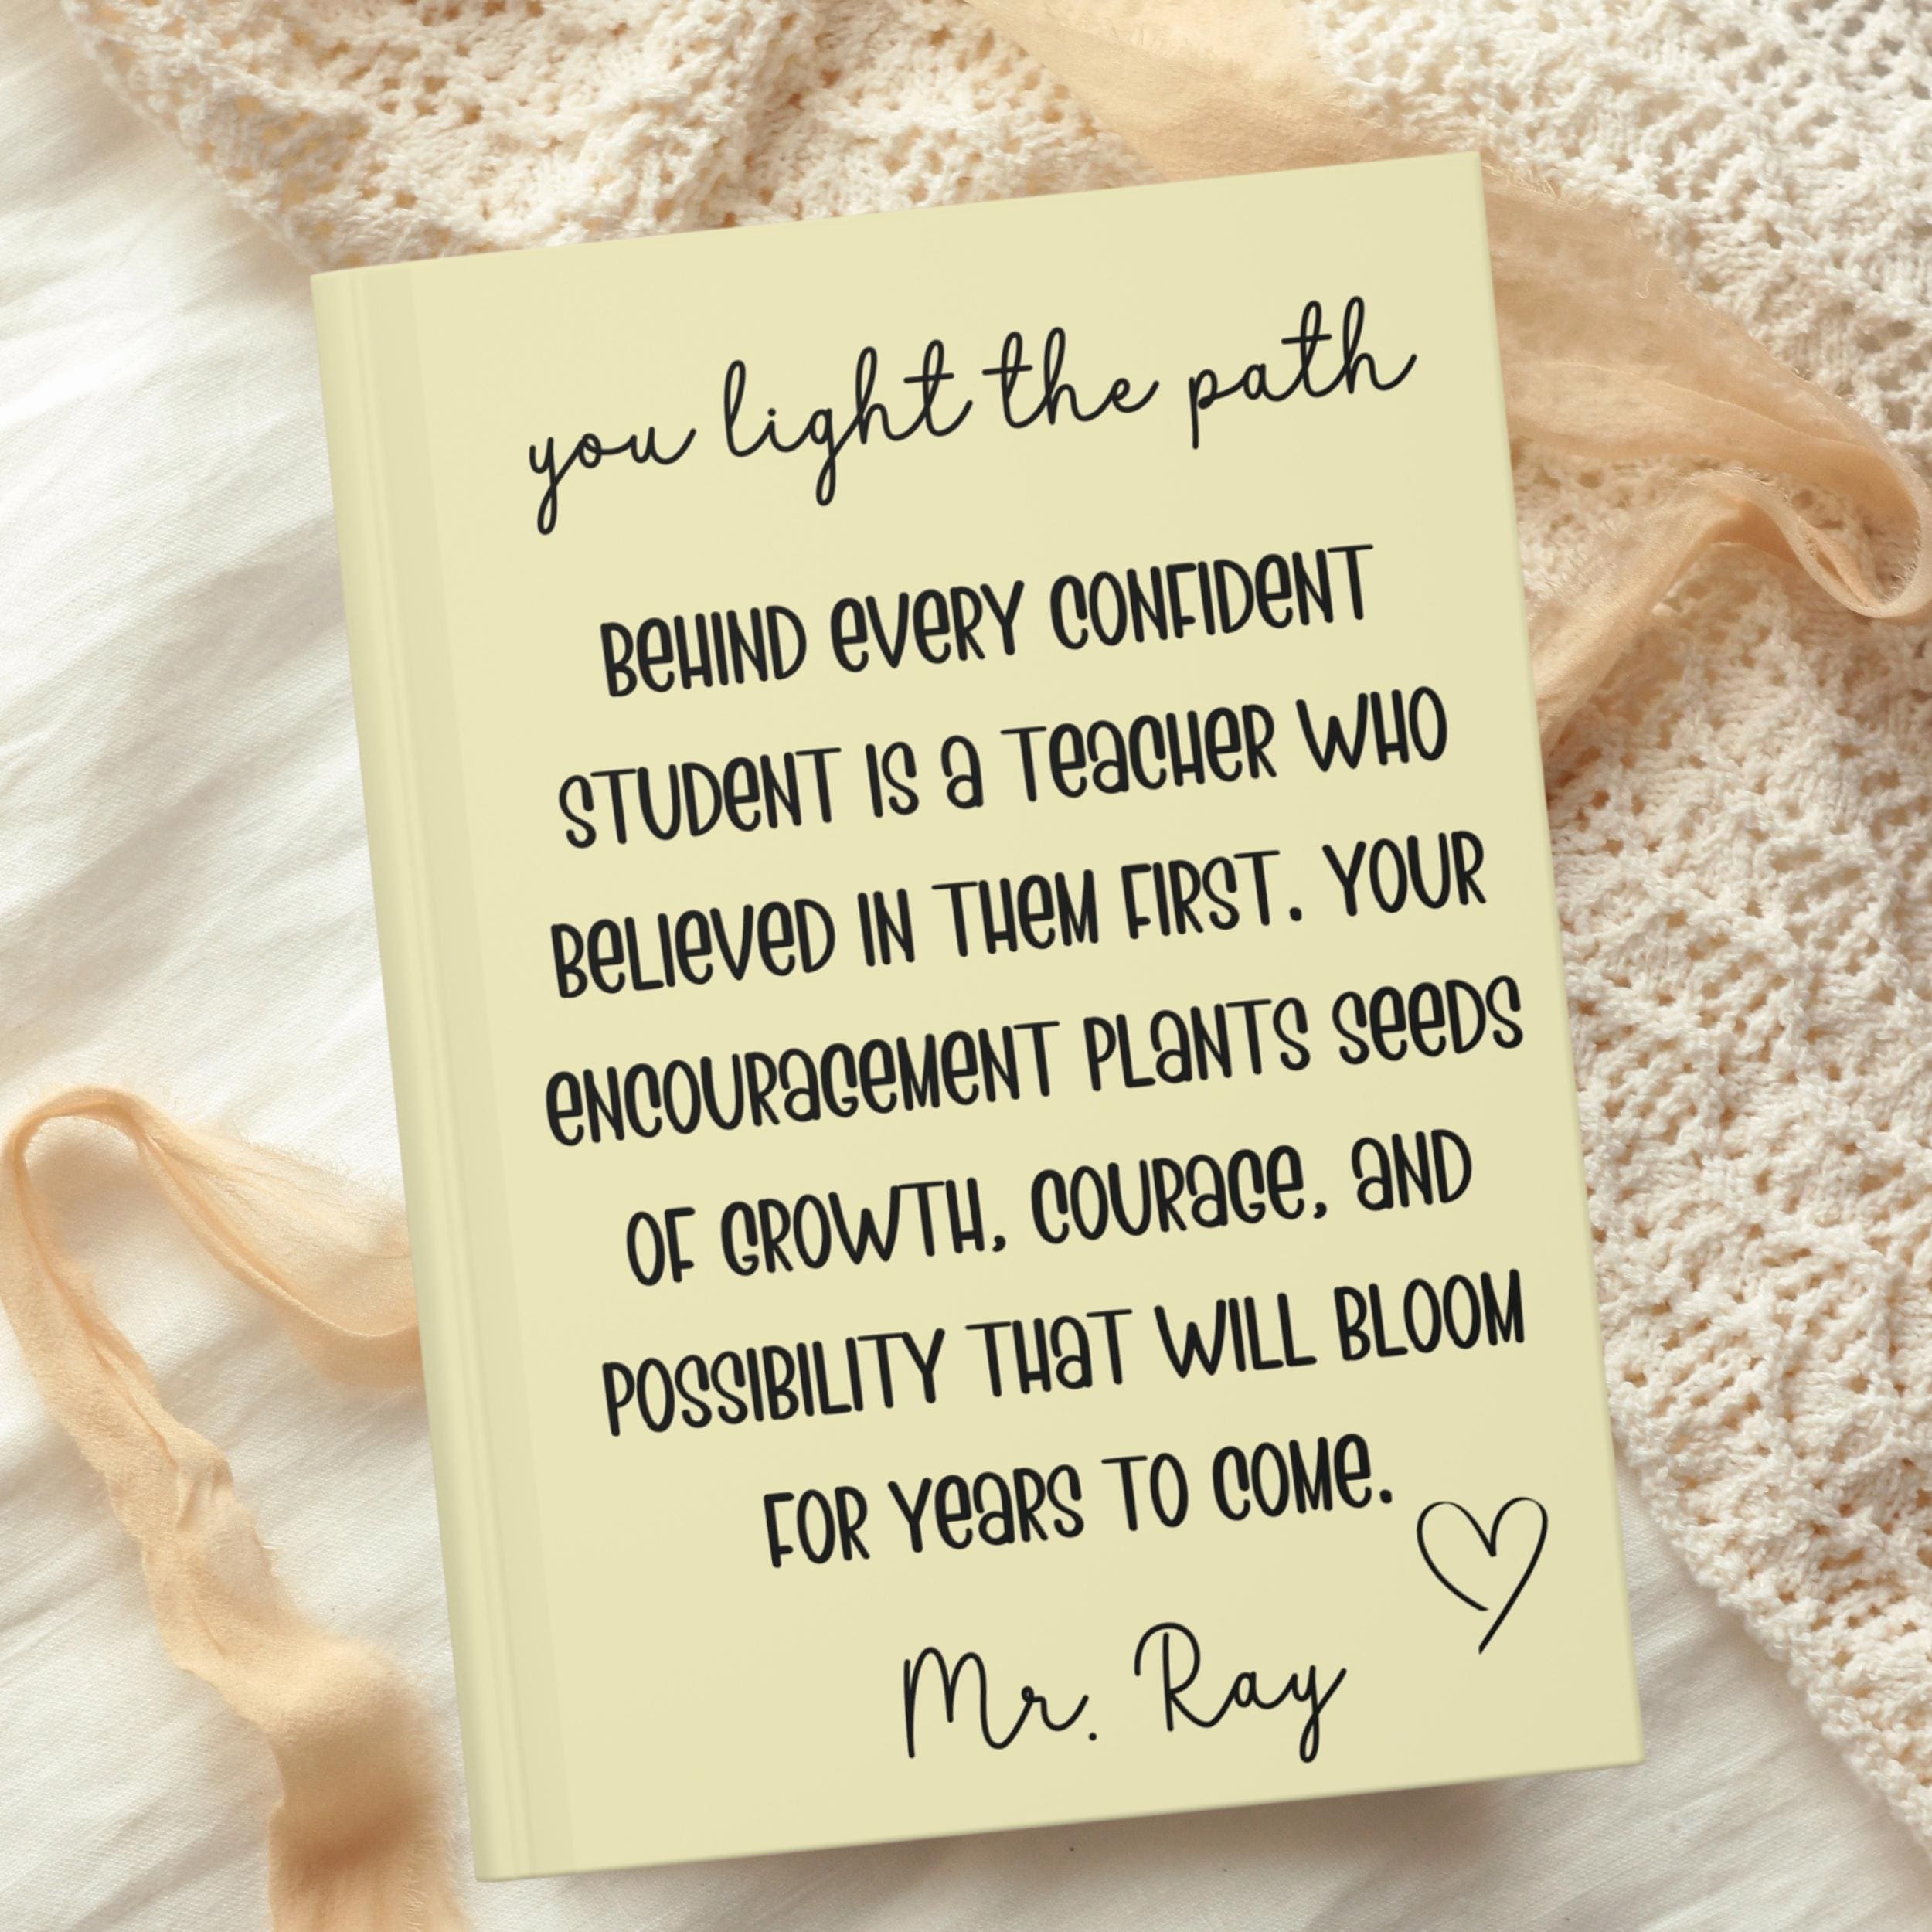 you light the path
BeHIND eVeRY CONFIDeNT
STUDeNT IS a TeaCHeR WHO
BeLIeVeD IN THeM FIRST. YOUR
eNCOURaGeMeNT PLaNTS SeeDS
OF GROWTH, COURaGe, aND
POSSIBILITY THaT WILL BLOOM
FOR YeaRS TO COMe.
Mr. Ray